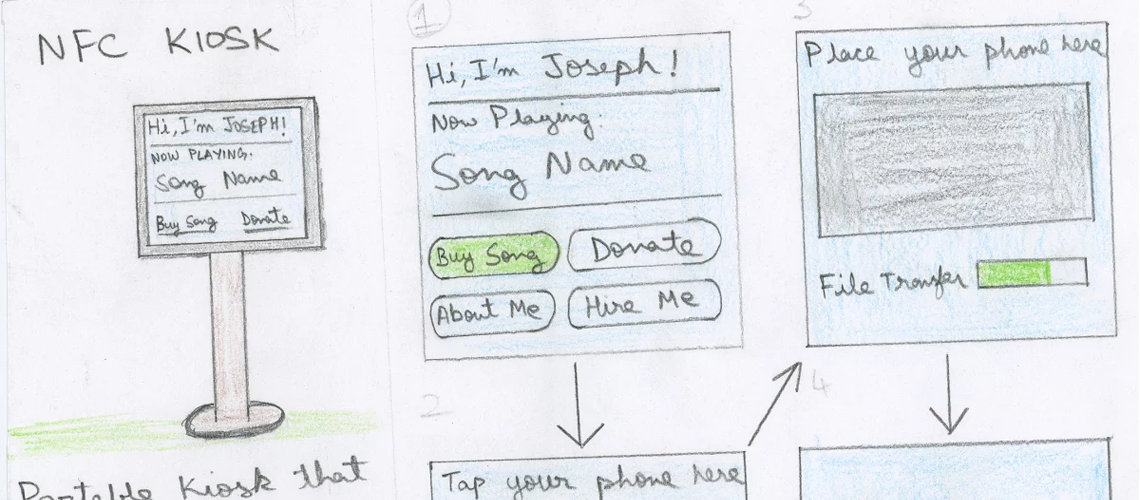 NFC KIOSK
Hi, I'm JOSEPH!
NOW PLAYING.
Song Name
Buy Song Donate
Portable Kiosk that
1
Hi, I'm Joseph!
Now Playing.
Song Name
Buy Song Donate
About Me Hire Me
2
Tap your phone here
3
Place your phone here
File Transfer
4